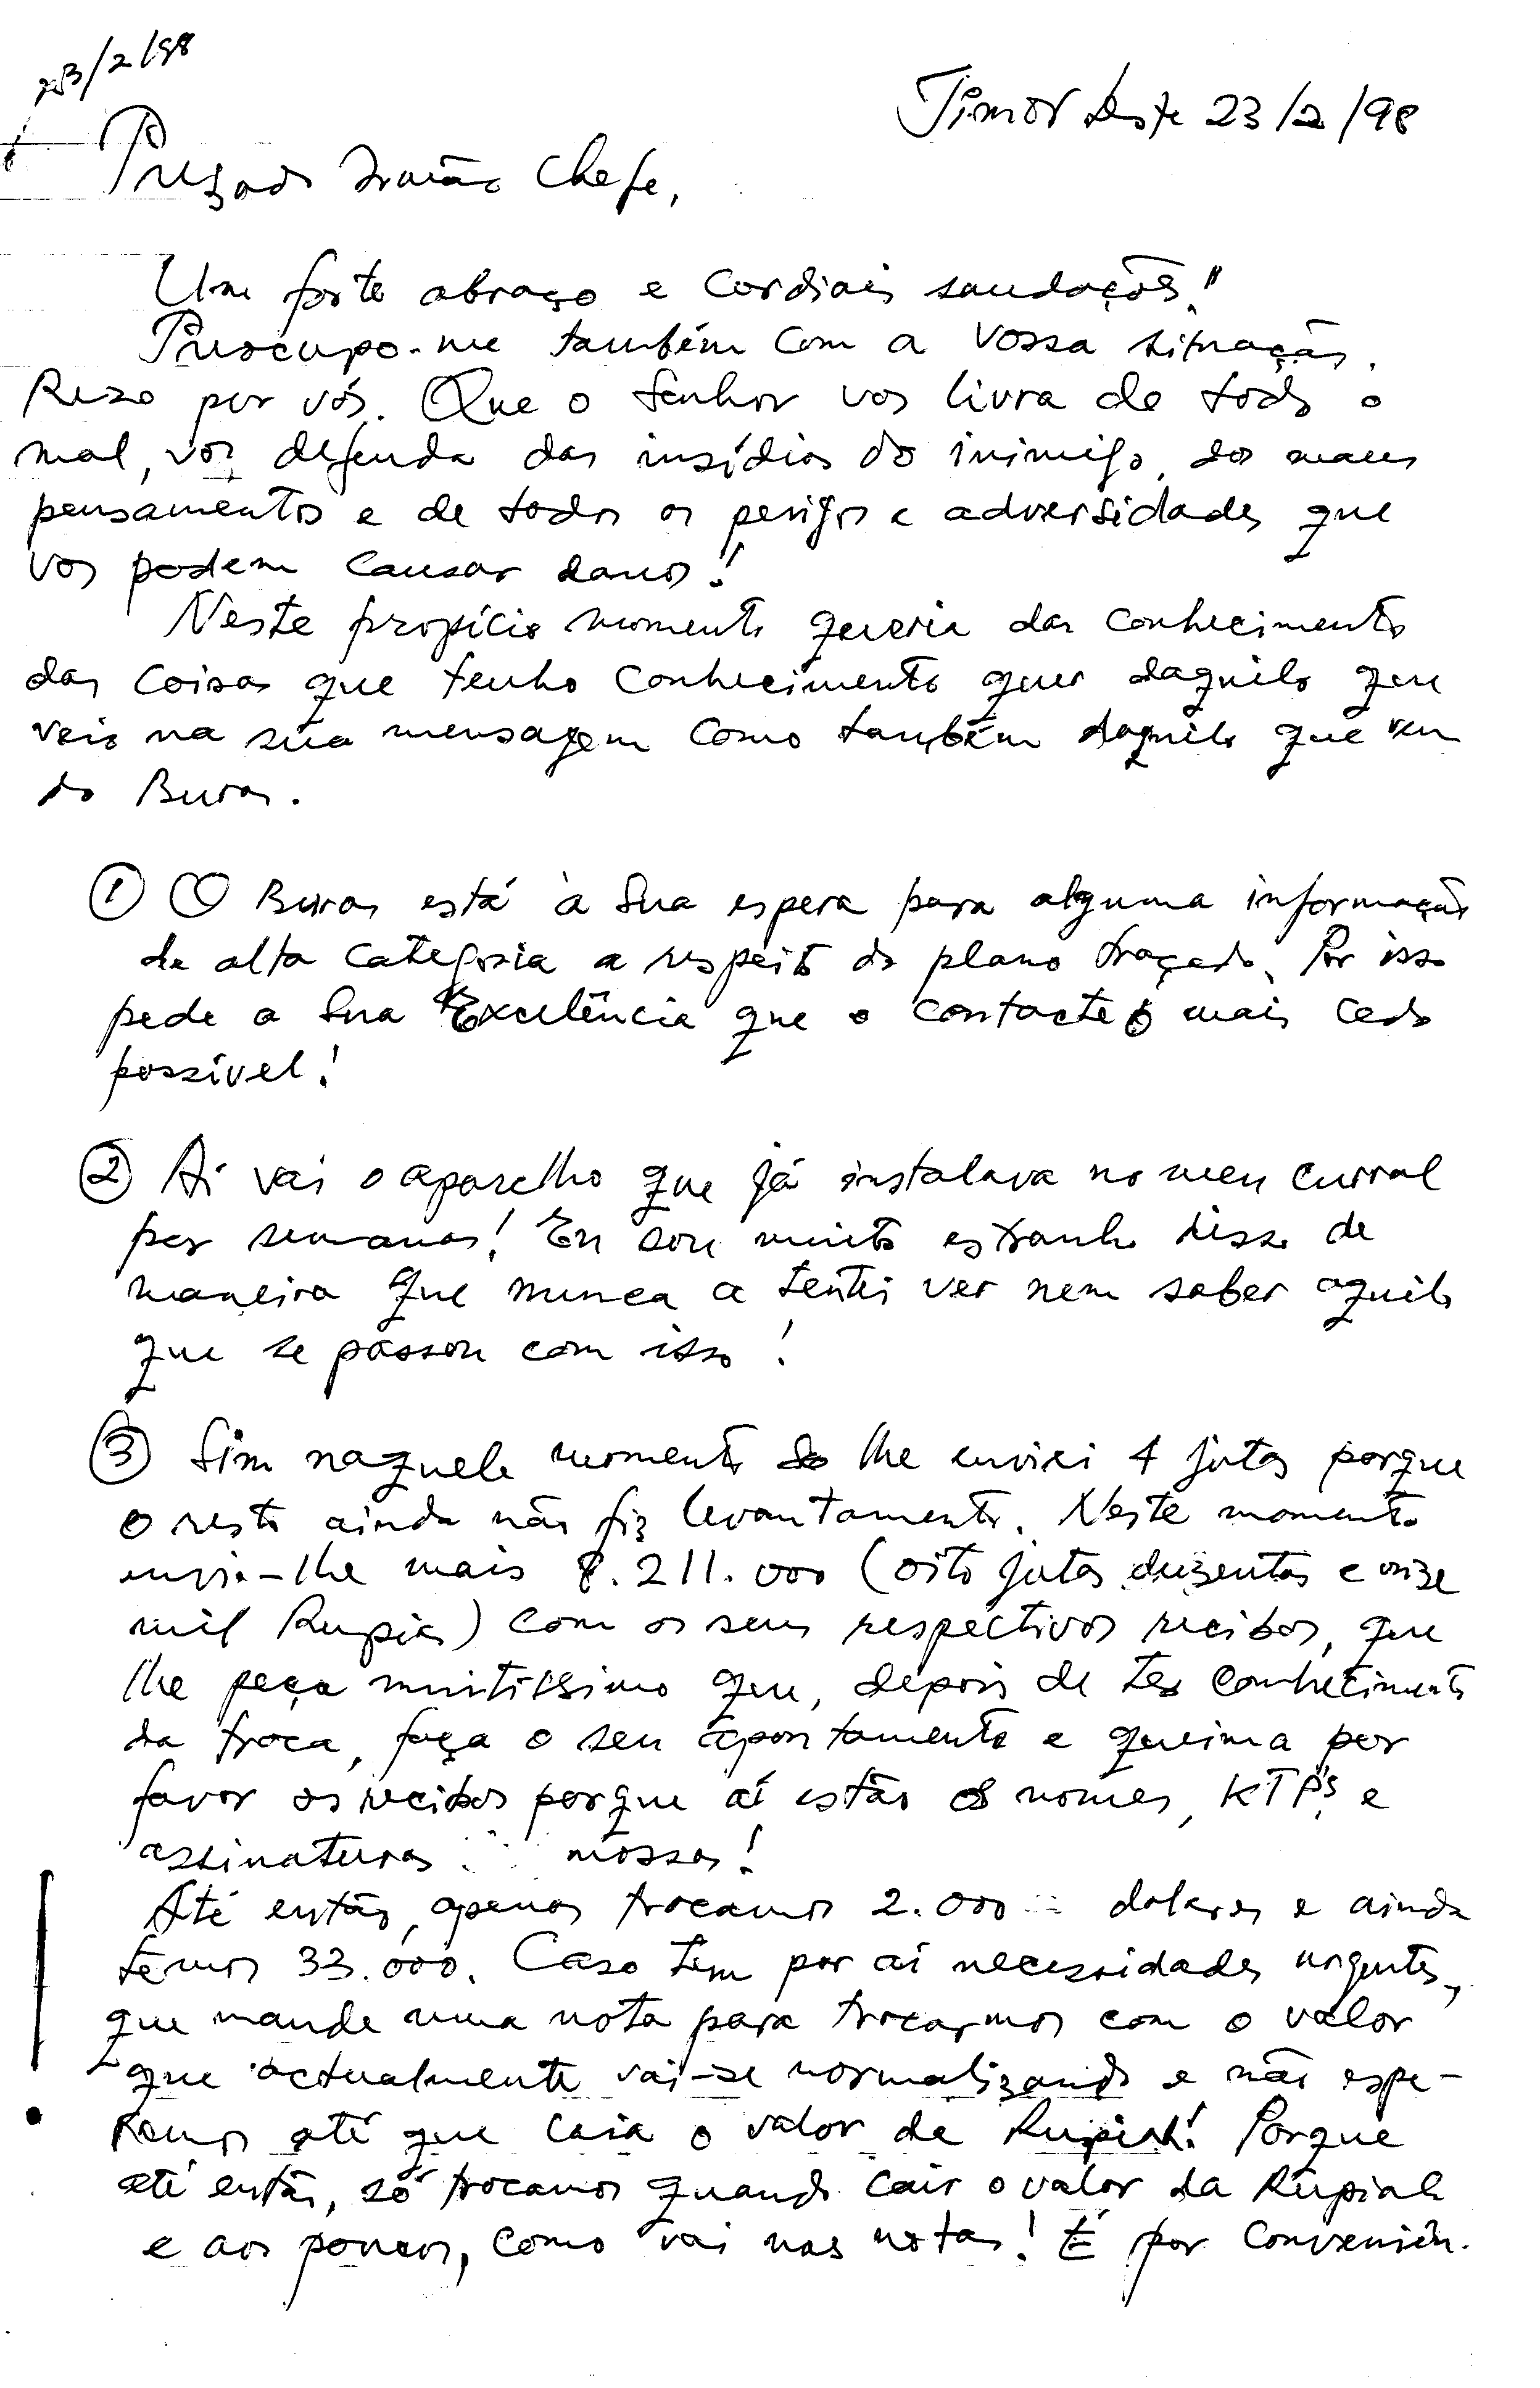 23/2/98
Timor Leste 23/2/98
Prezado Irmão Chefe,
Um forte abraço e cordiais saudações!
Preocupo-me também com a vossa situação.
Rezo por vós. Que o Senhor vos livra de todo o
mal, vos defenda das insídias do inimigo, dos maus
pensamentos e de todos os perigos e adversidades que
vos podem causar danos!
Neste propício momento queria dar conhecimento
das coisas que tenho conhecimento quer daquilo que
veio na sua mensagem como também daquilo que vem
do Buras.
① O Buras está à Sua espera para alguma informação
de alta categoria a respeito do plano traçado. Por isso
pede a Sua Excelência que o contacte o mais cedo
possível!
② Aí vai o aparelho que já instalava no meu curral
por semanas! Eu sou muito estranho disso de
maneira que nunca a tentei ver nem saber aquilo
que se passou com isso!
③ Sim naquele momento só lhe enviei 4 jutas porque
o resto ainda não fiz levantamento. Neste momento
envio-lhe mais 8.211.000 (oito jutas duzentos e onze
mil Rupias) com os seus respectivos recibos, que
lhe peço muitíssimo que, depois de ter conhecimento
da troca, faça o seu apontamento e queima por
favor os recibos porque aí estão os nomes, KTP's e
assinaturas nossas!
Até então, apenas trocamos 2.000 dolares e ainda
temos 33.000. Caso tem por aí necessidades urgentes,
que mande uma nota para trocarmos com o valor
que actualmente vai-se normalizando e não espe-
remos até que caia o valor de Rupiah! Porque
até então, só trocamos quando cair o valor da Rupiah
e aos poucos, como vai nas notas! É por conveniên-